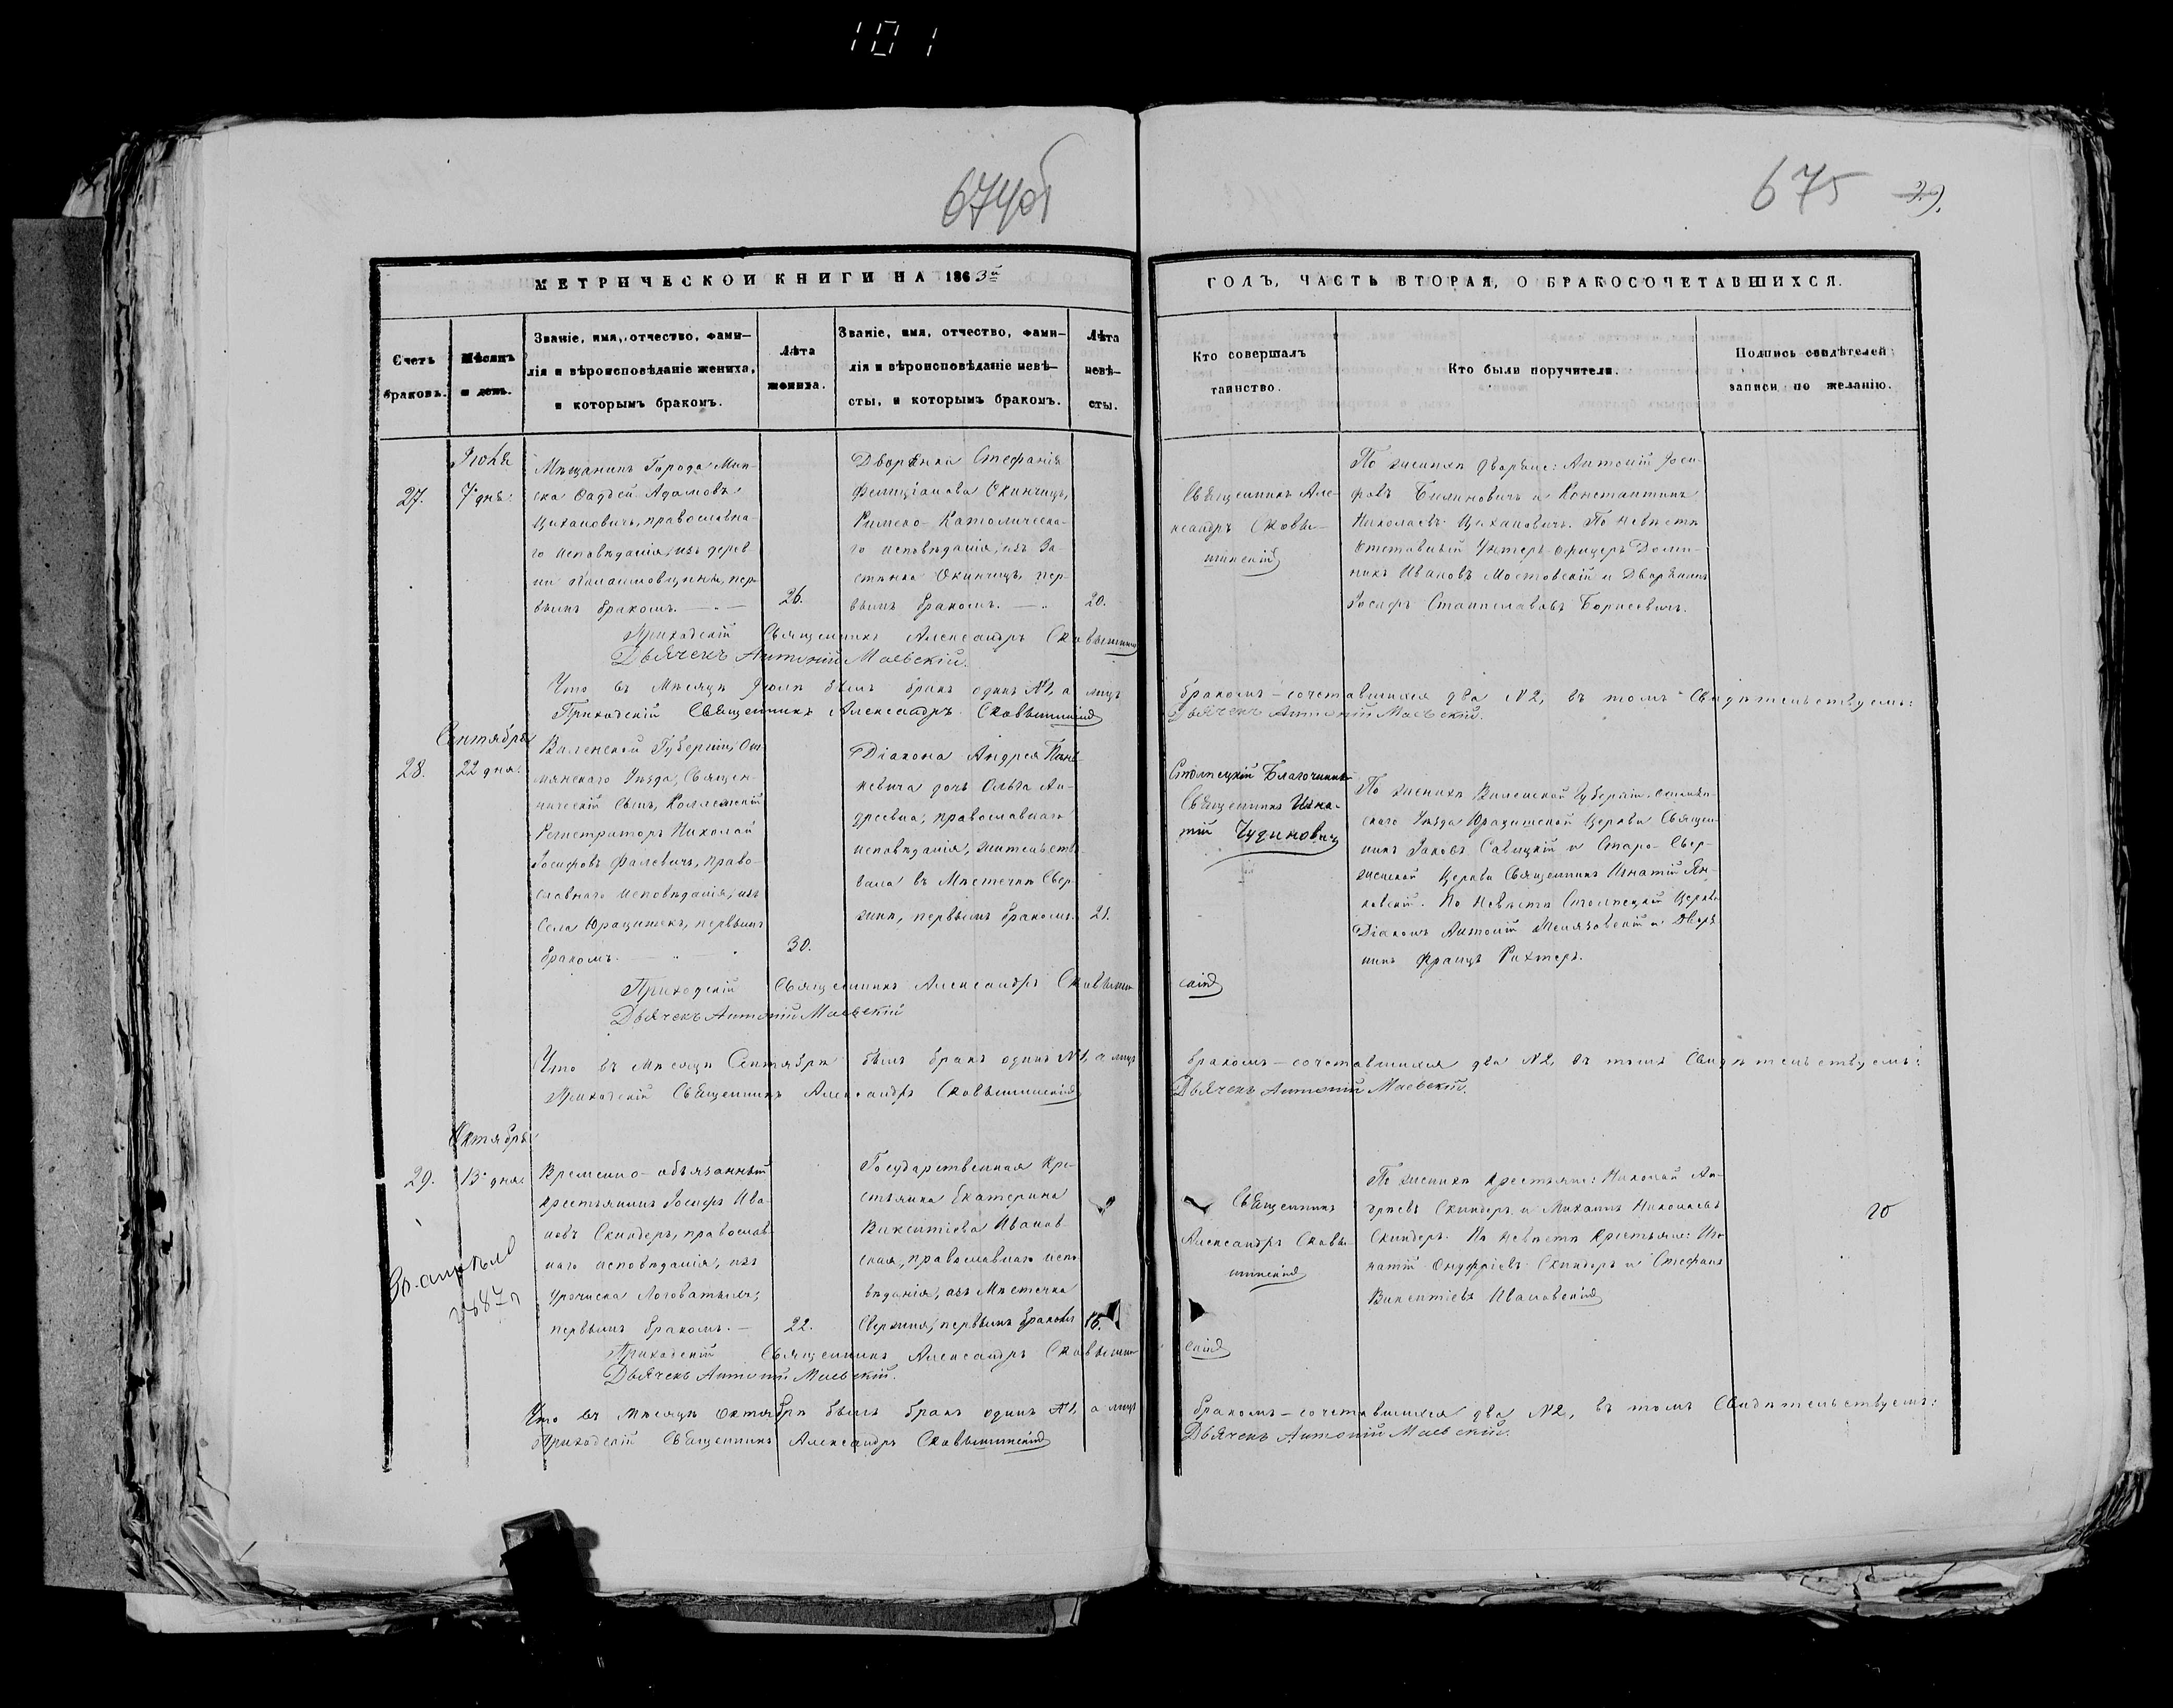 101
674об
675
МЕТРИЧЕСКОЙ КНИГИ НА 1863й
ГОДЪ, ЧАСТЬ ВТОРАЯ, О БРАКОСОЧЕТАВШИХСЯ.
Счетъ
браковъ.
Мѣсяцъ
и день.
Званіе, имя, отчество, фами-
лія и вѣроисповѣданіе жениха,
и которымъ бракомъ.
Лѣта
жениха.
Званіе, имя, отчество, фами-
лія и вѣроисповѣданіе невѣ-
сты, и которымъ бракомъ.
Лѣта
невѣ-
сты.
Кто совершалъ
таинство.
Кто были поручители.
Подпись свидѣтелей
записи по желанію.
27.
Іюля
7 дня.
Мѣщанинъ Города Мин-
ска Фаддей Адамовъ
Цихановичъ, православна-
го исповѣданія, изъ дерев-
ни, пер-
вымъ бракомъ.
26.
Дворянка Стефанія
Фелиціанова Окинчицъ,
Римско-Католическа-
го исповѣданія, изъ За-
стѣнка Окинчицъ, пер-
вымъ бракомъ.
20.
Священникъ Але-
ксандръ Сковы-
шинскій
По женихѣ дворяне: Антоній Іоси-
фовъ и Константинъ
Николаевъ Цехановичъ. По невѣстѣ
Отставный Унтеръ-офицеръ Доми-
никъ Ивановъ Мостовскій и Дворянинъ
Іосифъ Станиславовъ Борисевичъ.
Приходскій Священникъ Александръ Сковышинскій
Дьячекъ Антоній Маевскій.
Что въ Мѣсяцѣ Іюлѣ былъ бракъ одинъ №1, а лицъ бракомъ-сочетавшихся два №2, въ томъ Свидѣтельствуемъ:
Приходскій Священникъ Александръ Сковышинскій
Дьячекъ Антоній Маевскій.
28.
Сентября
22 дня.
Виленской Губерніи, Ош-
мянскаго Уѣзда, Священ-
ническій Сынъ, Коллежскій
Регистраторъ Николай
Іосифовъ Фалевичъ, право-
славнаго исповѣданія, изъ
Села Юрацишекъ, первымъ
бракомъ.
30.
Діакона Андрея Пань-
кевича дочь Ольга Ан-
дреевна, православнаго
исповѣданія, жительство-
вала въ Мѣстечкѣ Свер-
жнѣ, первымъ бракомъ.
21.
Столпецкій Благочинный
Священникъ Игна-
тій Чудиновичъ
По женихѣ Виленской Губерніи Ошмян-
скаго Уѣзда Юрацишской Церкви Священ-
никъ Іаковъ Савицкій и Старо-Свер-
женской Церкви Священникъ Игнатій Ян-
ковскій. По невѣстѣ Столпецкой Церкви
Діаконъ Антоній и Дворя-
нинъ Францъ Рихтеръ.
Приходскій Священникъ Александръ Сковышинскій
Дьячекъ Антоній Маевскій
Что въ Мѣсяцѣ Сентябрѣ былъ бракъ одинъ №1, а лицъ бракомъ-сочетавшихся два №2, въ томъ Свидѣтельствуемъ:
Приходскій Священникъ Александръ Сковышинскій
Дьячекъ Антоній Маевскій.
29.
Октября
13 дня.
Временно-обязанный
крестьянинъ Іосифъ Ива-
новъ Скиндеръ, православ-
наго исповѣданія, изъ
урочиска,
первымъ бракомъ.
22.
Государственная Кре-
стьянка Екатерина
Викентіева Иванов-
ская, православнаго испо-
вѣданія, изъ Мѣстечка
Свержня, первымъ бракомъ
16.
Священникъ
Александръ Сковы-
шинскій
По женихѣ крестьяне: Николай Ан-
дреевъ Скиндеръ и Михаилъ Николаевъ
Скиндеръ. По невѣстѣ Крестьяне: Иг-
натій Онуфріевъ Скиндеръ и Стефанъ
Викентіевъ Ивановскій
Приходскій Священникъ Александръ Сковышинскій
Дьячекъ Антоній Маевскій.
Что въ Мѣсяцѣ Октябрѣ былъ бракъ одинъ №1, а лицъ бракомъ-сочетавшихся два №2, въ томъ Свидѣтельствуемъ:
Приходскій Священникъ Александръ Сковышинскій
Дьячекъ Антоній Маевскій.